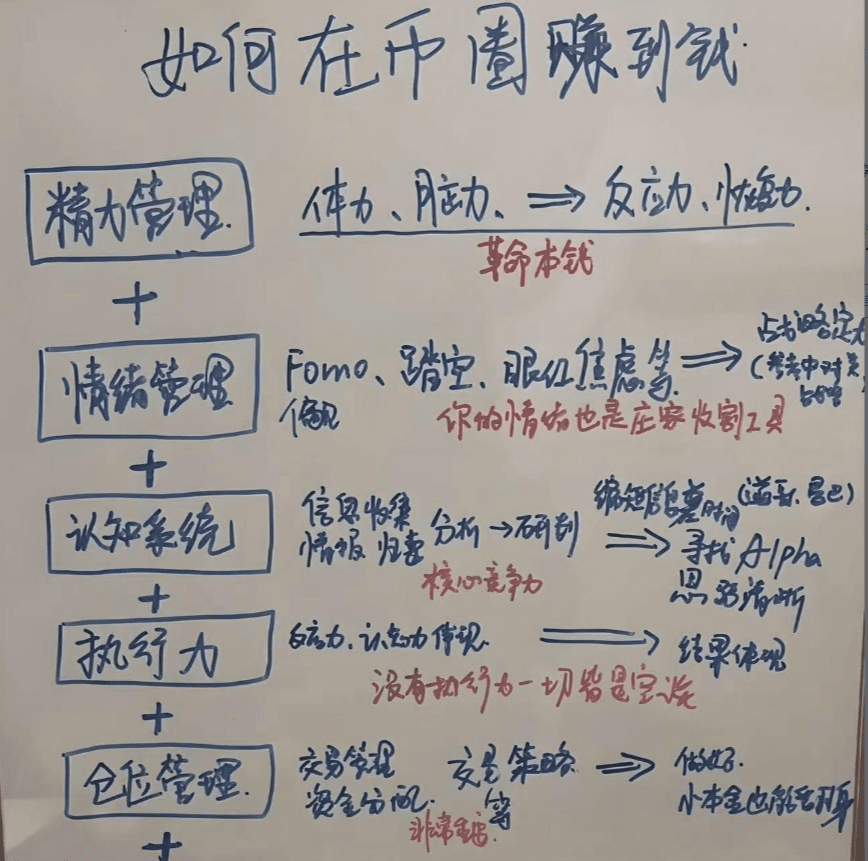 如何在币圈赚到钱
精力管理 体力、脑力、⇒ 反应力、恢复力.
革命本钱
+
情绪管理 Fomo、踏空、眼红焦虑等 ⇒
偏见
你的情绪也是庄家收割工具
+
认知系统 信息收集 分析→研判 ⇒ 缩短信息差时间
情报 归索 寻找Alpha
核心竞争力 思路清晰
+
执行力 反应力、认知力体现. ⇒ 结果体现
没有执行力一切皆是空谈
+
仓位管理. 交易管理 交易策略. ⇒ 做好.
资金分配. 等 小本金也能翻身
非常重要.
+